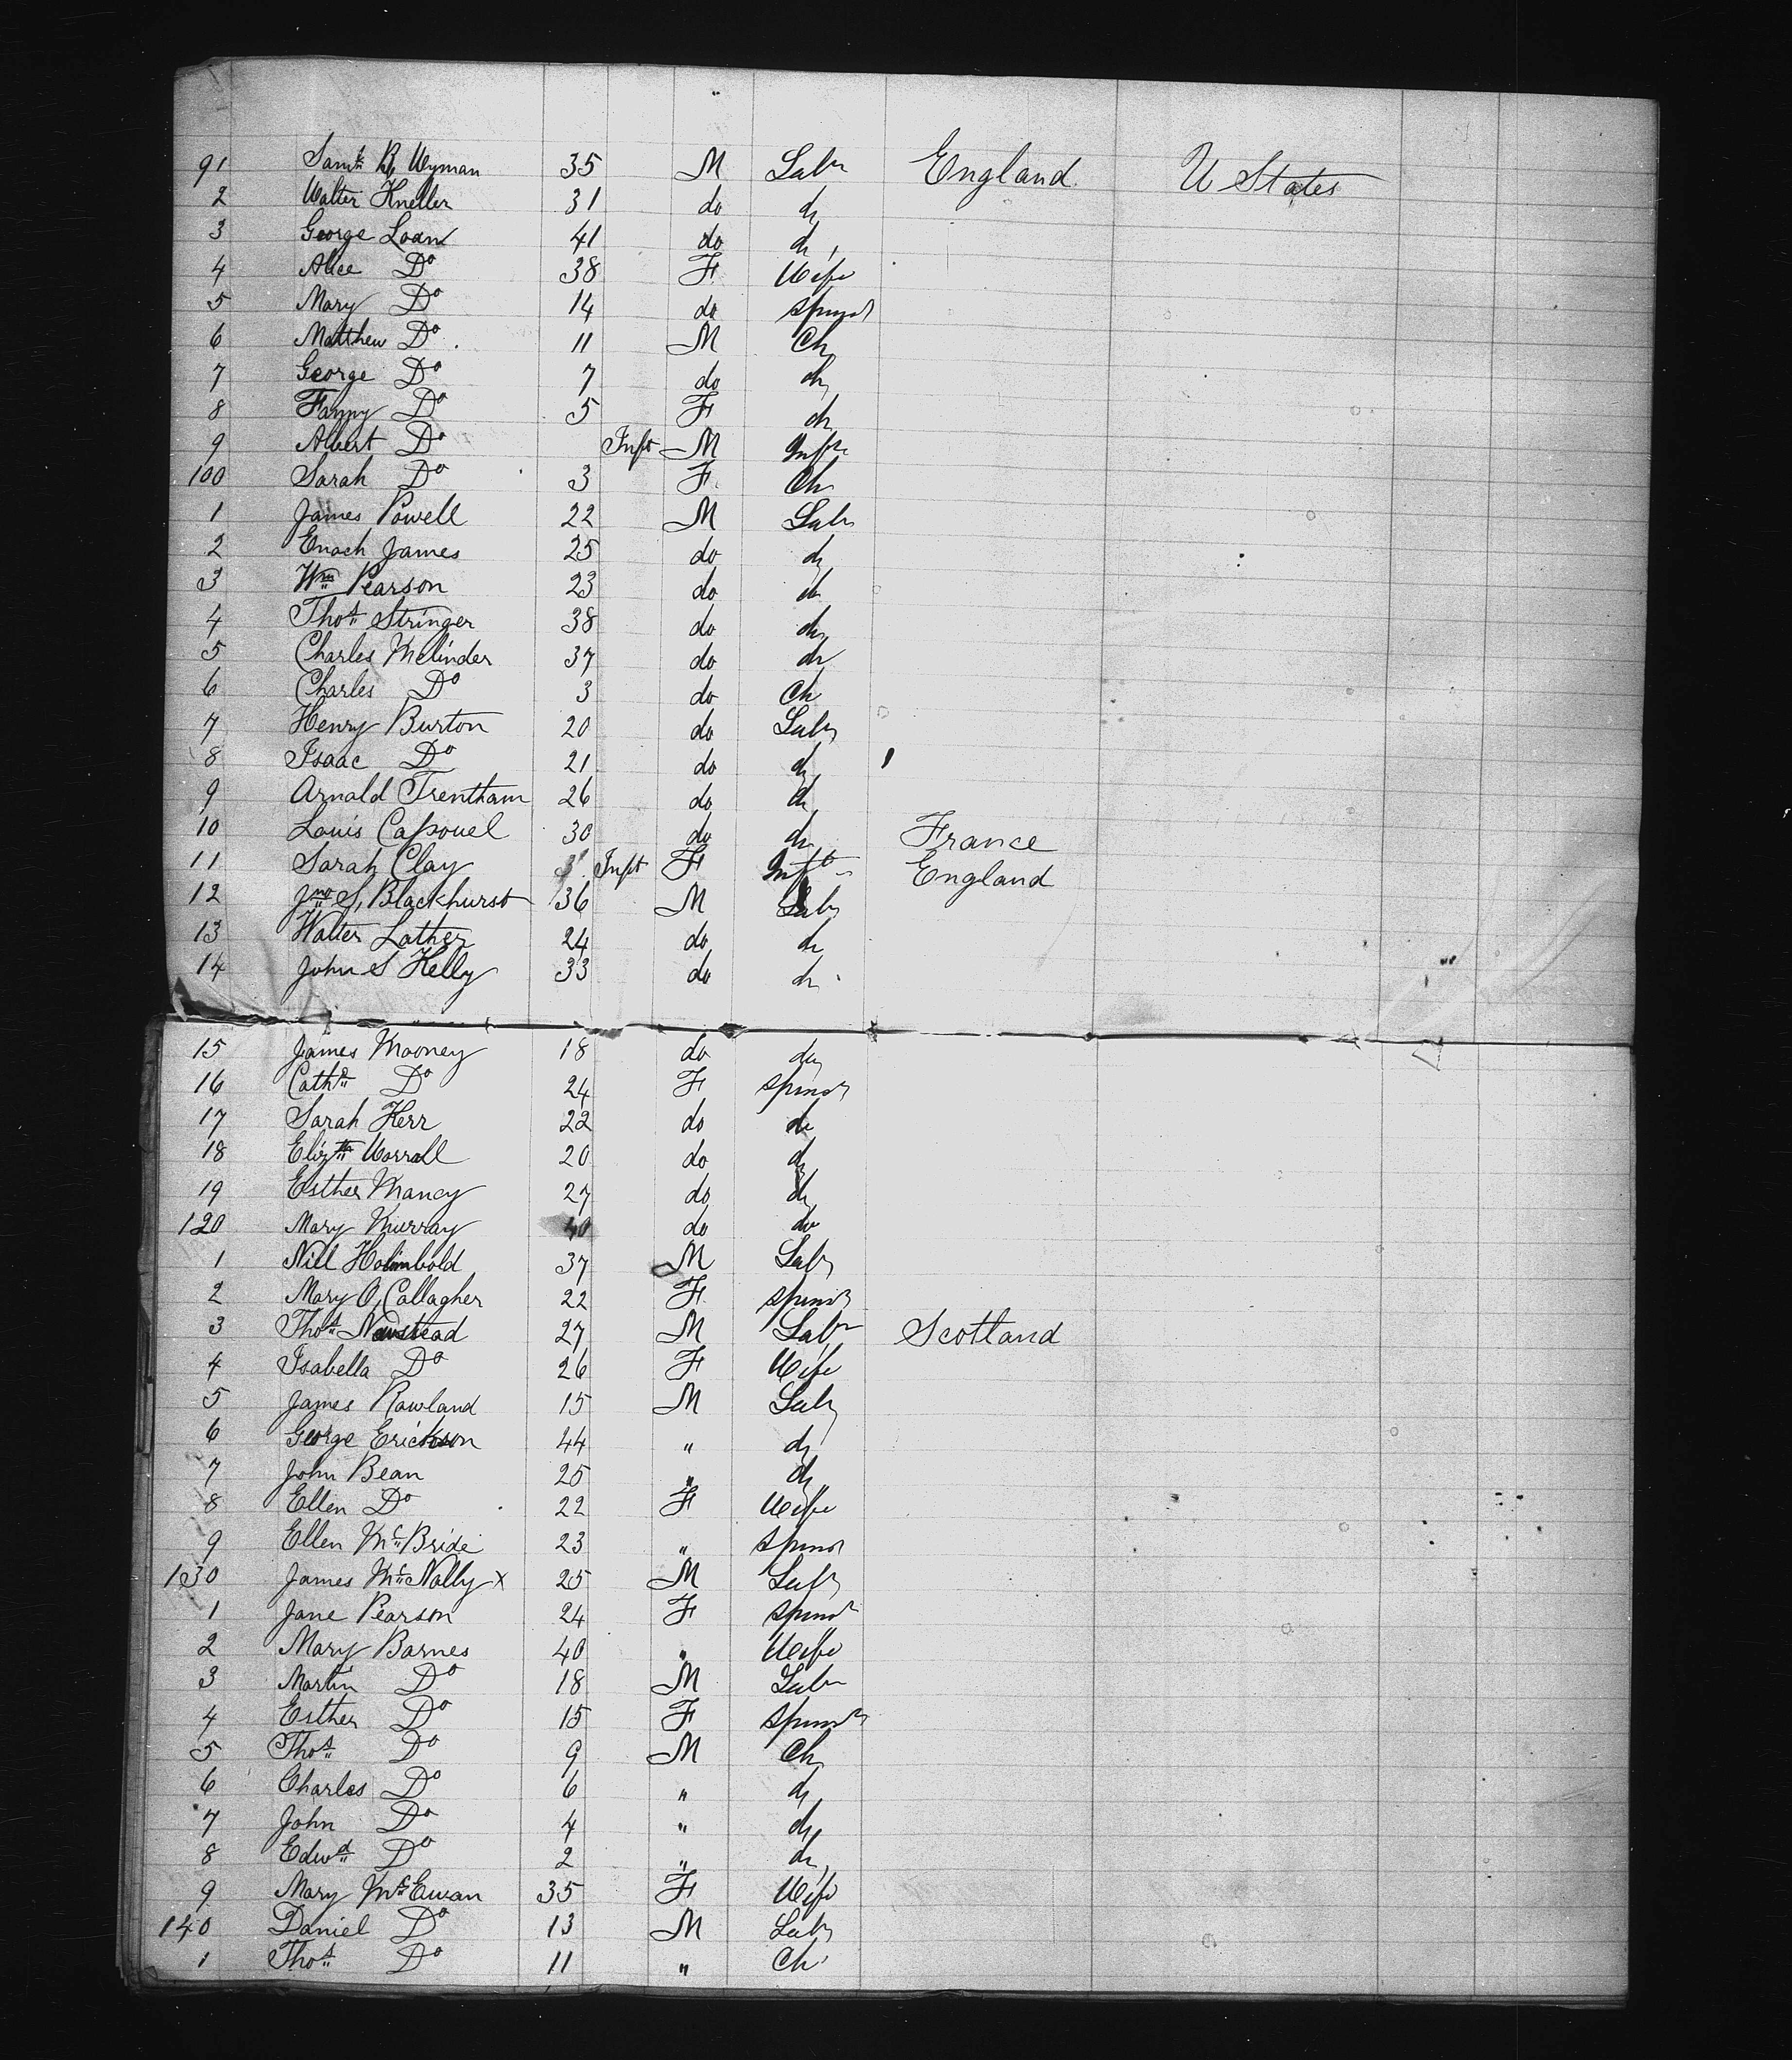 91 Saml B, Wyman 35 M Labr England U States
2 Walter Kneller 31 do do
3 George Loan 41 do do
4 Alice Do 38 F Wife
5 Mary Do 14 do spinsr
6 Matthew Do 11 M Ch
7 George Do 7 do do
8 Fanny Do 5 F do
9 Albert Do Inft M Inft
100 Sarah Do 3 F Ch
1 James Powell 22 M Labr
2 Enoch James 25 do do
3 Wm Pearson 23 do do
4 Thos Stringer 38 do do
5 Charles Melinder 37 do do
6 Charles Do 3 do Ch
7 Henry Burton 20 do Labr
8 Isaac Do 21 do do
9 Arnald Trentham 26 do do
10 Louis Capouel 30 do do France
11 Sarah Clay Inft F Inft England
12 Jno S, Blackhurst 36 M Labr
13 Walter Lather 24 do do
14 John S Kelly 33 do do
15 James Mooney 18 do do
16 Cathe Do 24 F spinsr
17 Sarah Kerr 22 do do
18 Elizth Worrall 20 do do
19 Esther Mancy 27 do do
120 Mary Murray 40 do do
1 Niel Holimbold 37 M Labr
2 Mary O, Callagher 22 F spinsr
3 Thos Newstead 27 M Labr Scotland
4 Isabella Do 26 F Wife
5 James Rowland 15 M Labr
6 George Erickson 44 " do
7 John Bean 25 " do
8 Ellen Do 22 F Wife
9 Ellen McBride 23 " spinsr
130 James McNally x 25 M Labr
1 Jane Pearson 24 F spinsr
2 Mary Barnes 40 " Wife
3 Martin Do 18 M Labr
4 Esther Do 15 F spinsr
5 Thos Do 9 M Ch
6 Charles Do 6 " do
7 John Do 4 " do
8 Edwd Do 2 " do
9 Mary McEwan 35 F Wife
140 Daniel Do 13 M Labr
1 Thos Do 11 " Ch